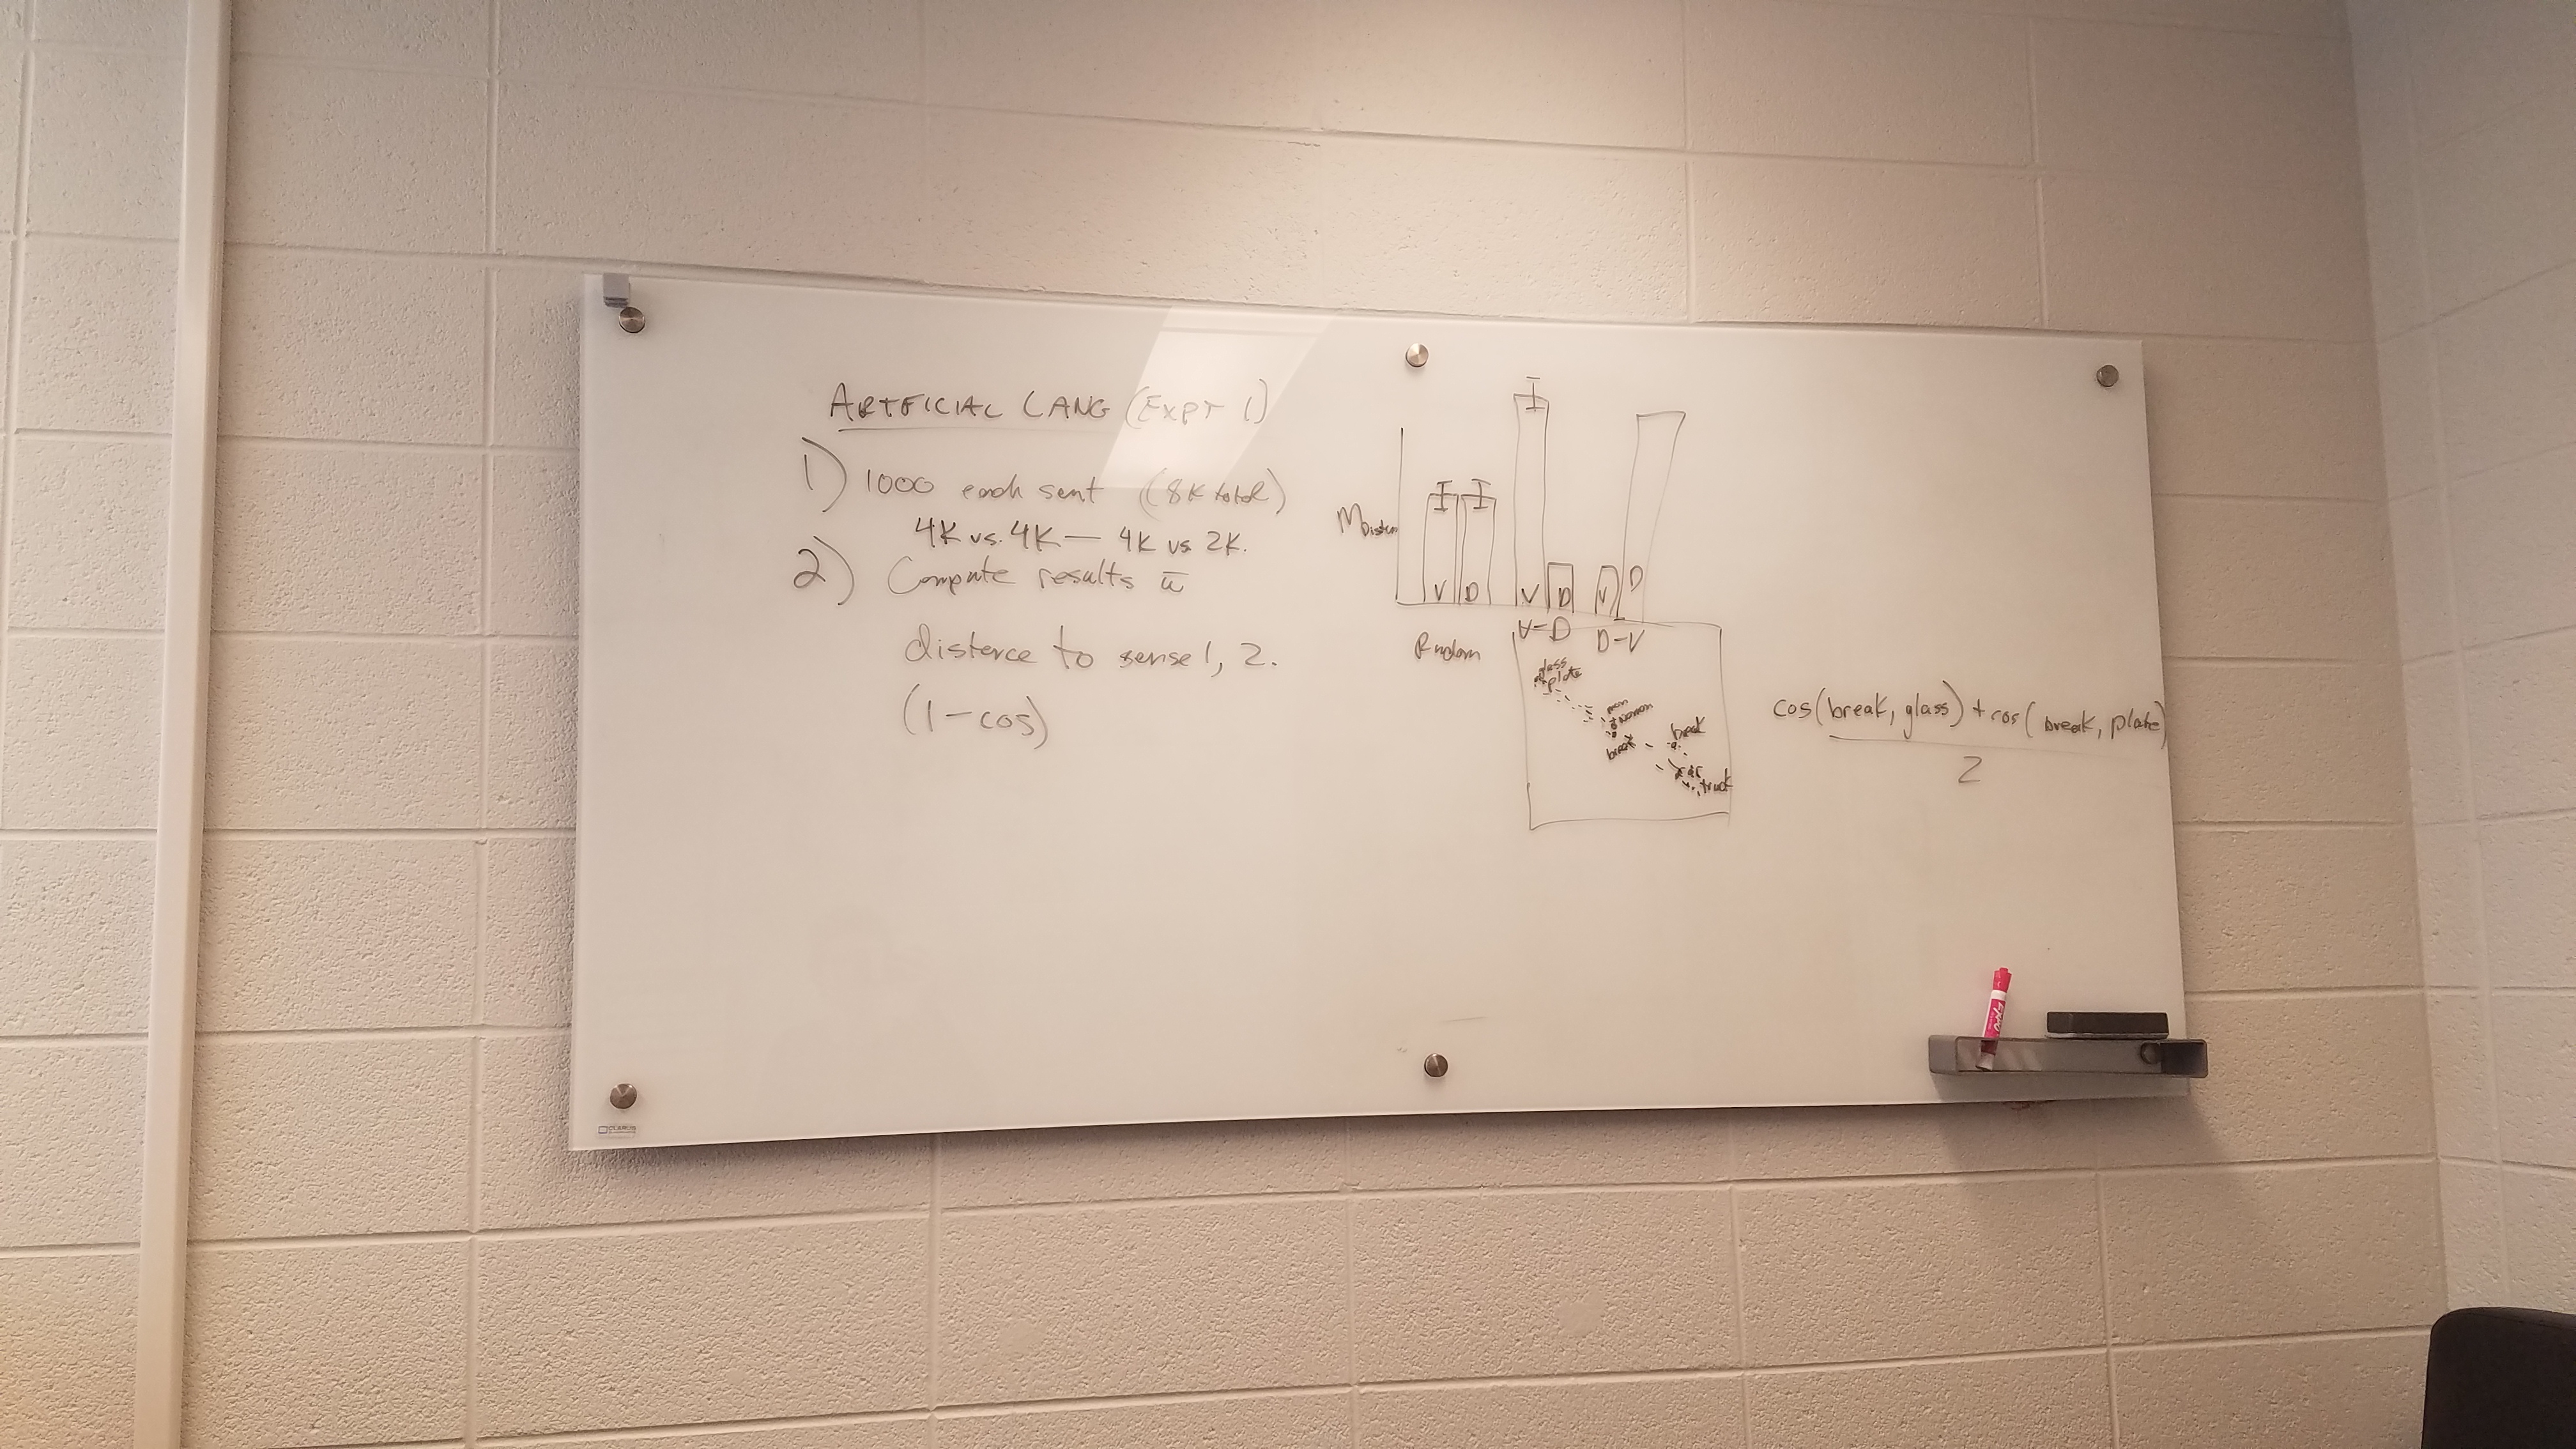 ARTFICIAL LANG (EXPT 1)
1) 1000 each sent (8K total)
4K vs. 4K — 4K vs 2K.
2) Compute results w̄
distence to sense 1, 2.
(1-cos)
M Distan
V D V D V D
V-D D-V
Random
glass
plate
man
woman
break
break
car
truck
cos(break, glass) + cos(break, plate)
2
EXPO
CLARUS